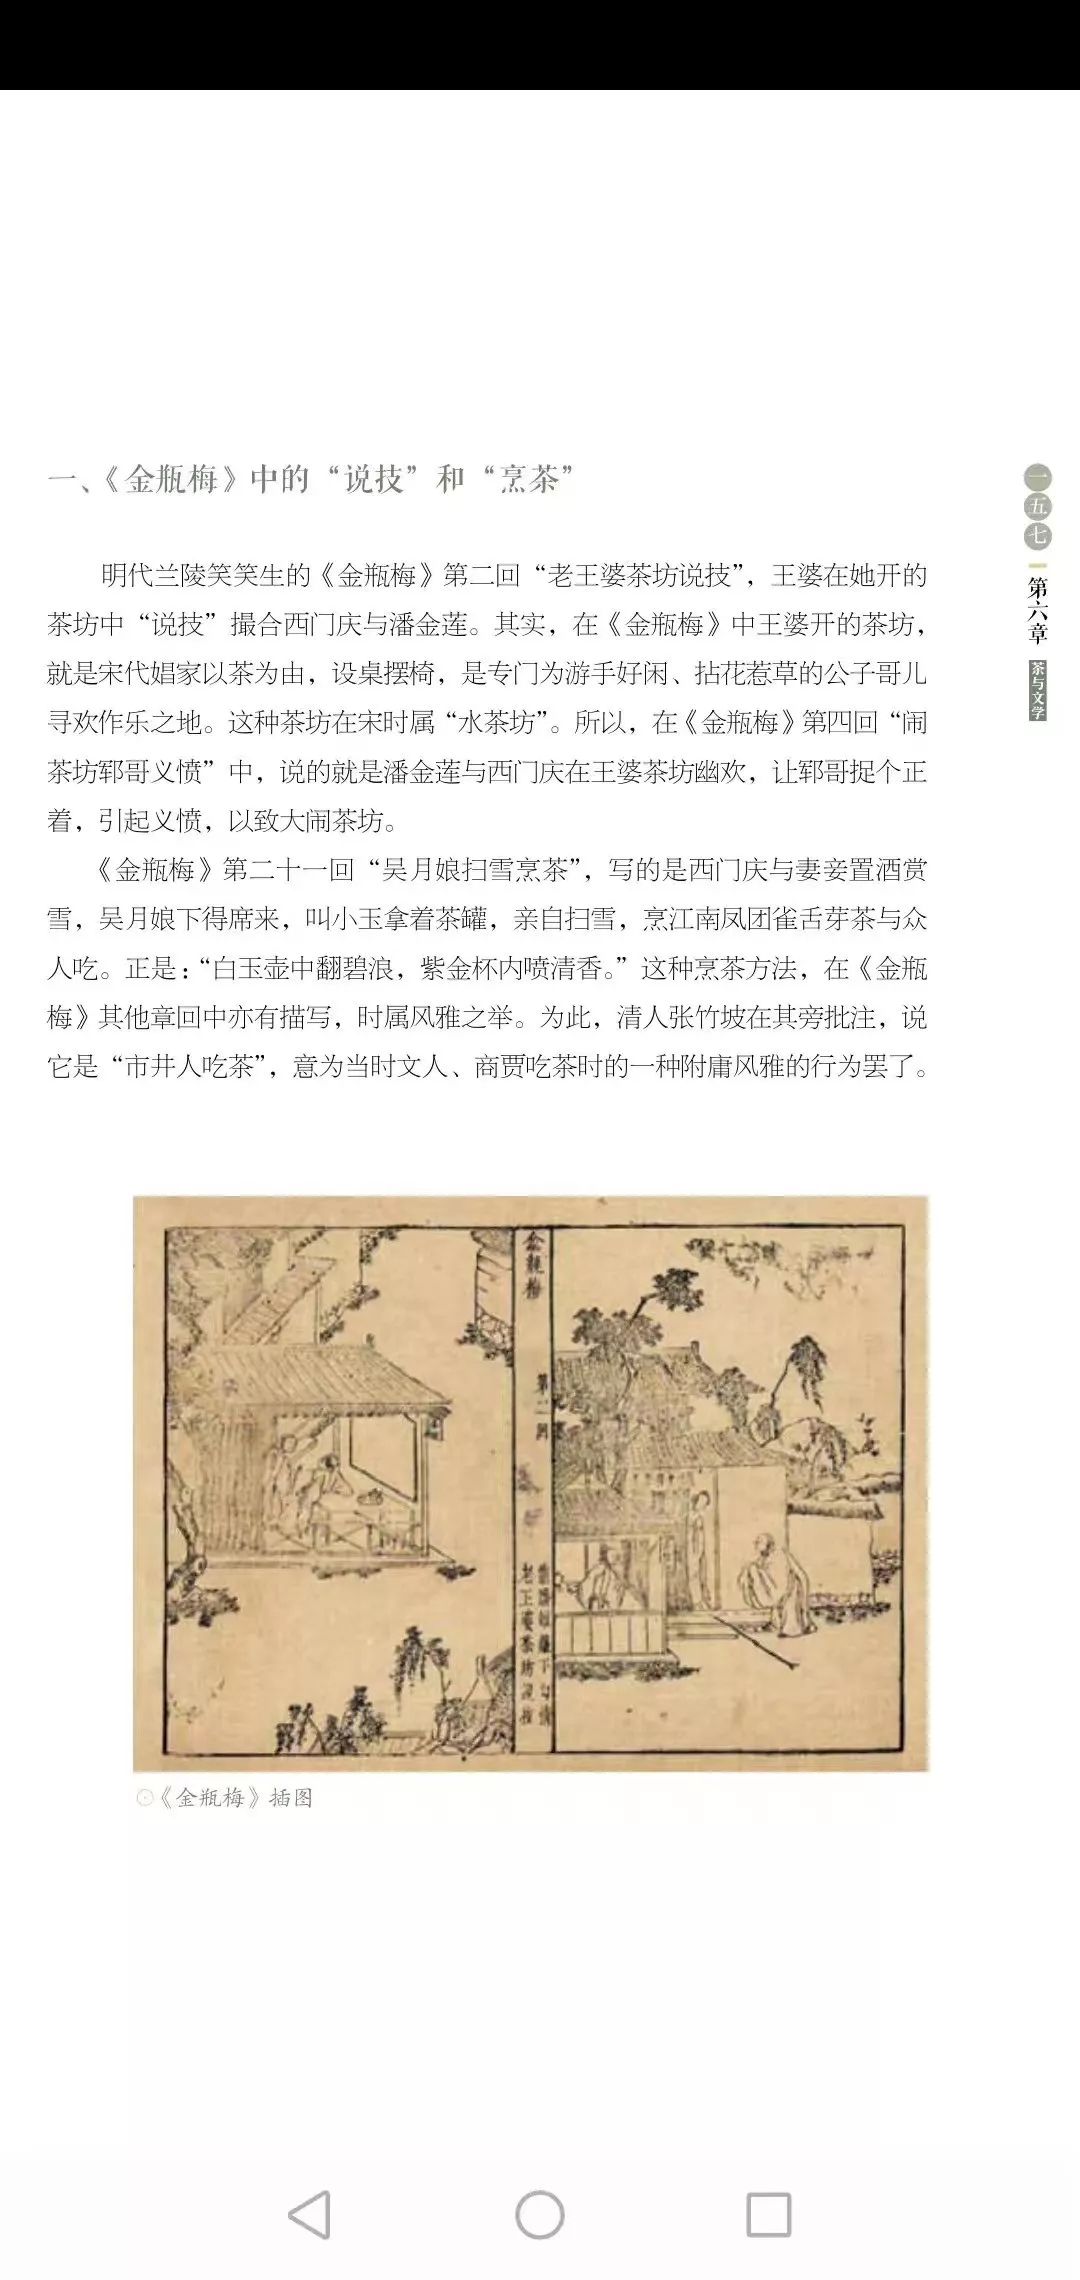 一、《金瓶梅》中的“说技”和“烹茶”
明代兰陵笑笑生的《金瓶梅》第二回“老王婆茶坊说技”，王婆在她开的
茶坊中“说技”撮合西门庆与潘金莲。其实，在《金瓶梅》中王婆开的茶坊，
就是宋代娼家以茶为由，设桌摆椅，是专门为游手好闲、拈花惹草的公子哥儿
寻欢作乐之地。这种茶坊在宋时属“水茶坊”。所以，在《金瓶梅》第四回“闹
茶坊郓哥义愤”中，说的就是潘金莲与西门庆在王婆茶坊幽欢，让郓哥捉个正
着，引起义愤，以致大闹茶坊。
《金瓶梅》第二十一回“吴月娘扫雪烹茶”，写的是西门庆与妻妾置酒赏
雪，吴月娘下得席来，叫小玉拿着茶罐，亲自扫雪，烹江南凤团雀舌芽茶与众
人吃。正是：“白玉壶中翻碧浪，紫金杯内喷清香。”这种烹茶方法，在《金瓶
梅》其他章回中亦有描写，时属风雅之举。为此，清人张竹坡在其旁批注，说
它是“市井人吃茶”，意为当时文人、商贾吃茶时的一种附庸风雅的行为罢了。
一五七
第六章
茶与文学
金瓶梅
第二回
老王婆茶坊說技
《金瓶梅》插图